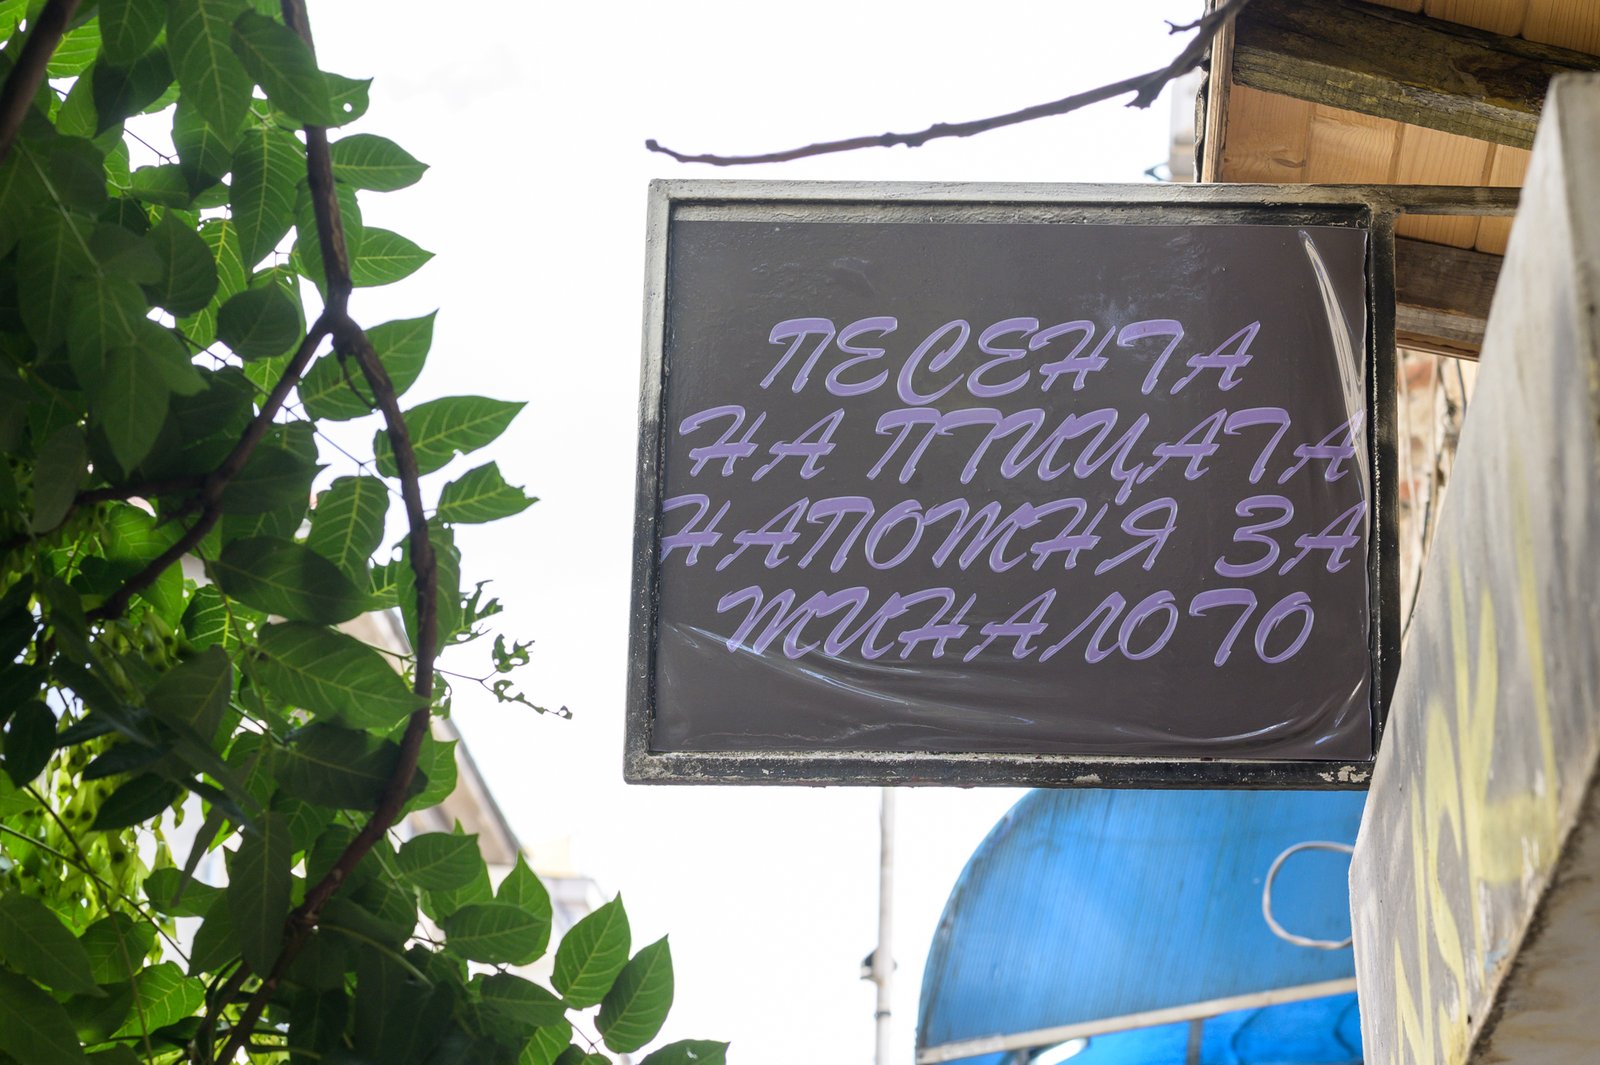 ПЕСЕНТА
НА ПТИЦАТА
НАПОМНЯ ЗА
МИНАЛОТО